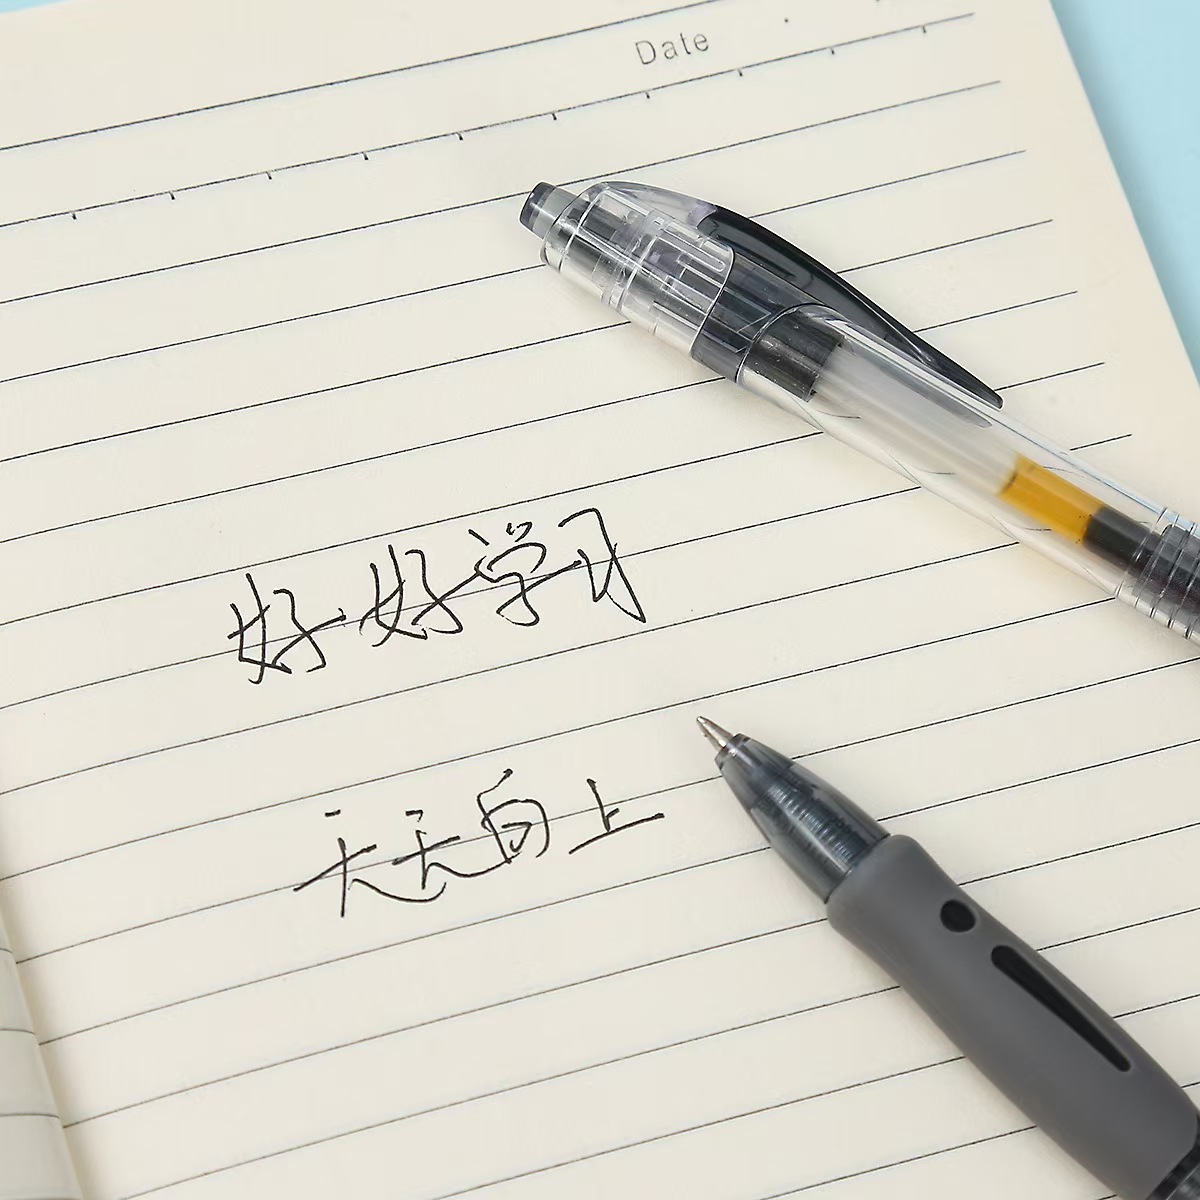 Date
好好学习
天天向上